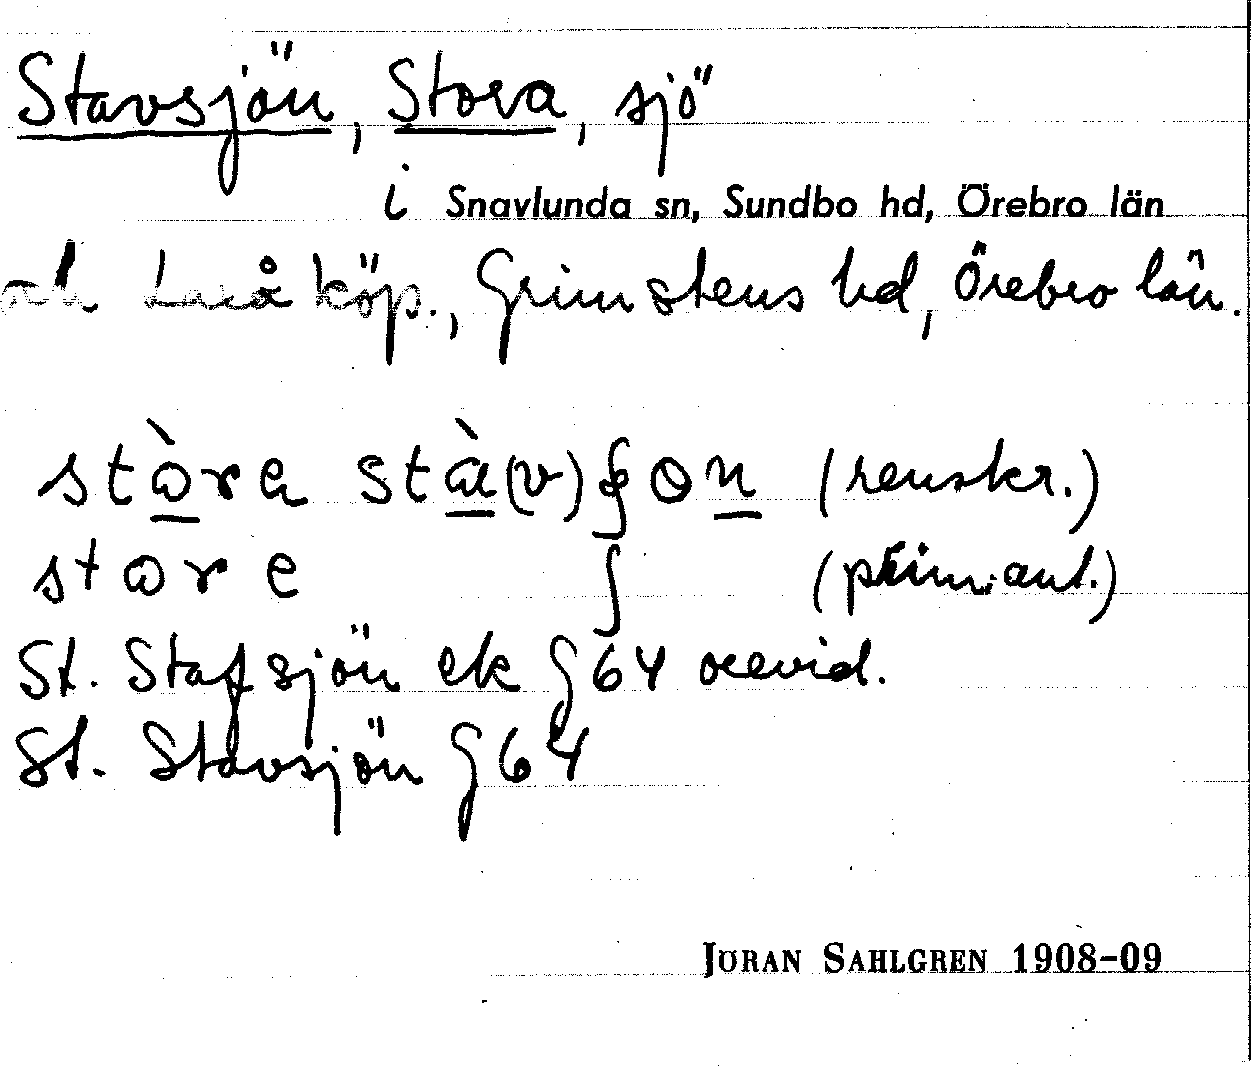 Stavsjön, Stora, sjö
i Snavlunda sn, Sundbo hd, Örebro län
och Laxå köp., Grimstens hd, Örebro län.
stò̱ra stà̱(v)ʃoṉ (renskr.)
store ʃ (prim.ant.)
St. Stafsjön ek § 64 
St. Stavsjön § 64
JÖRAN SAHLGREN 1908-09